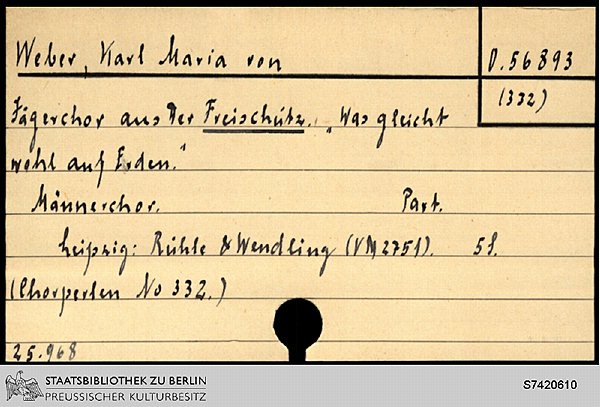 Weber, Karl Maria von
O.56893
(332)
Jägerchor aus Der Freischütz. „Was gleicht
wohl auf Erden."
Männerchor. Part.
Leipzig: Rühle & Wendling (VN 2751). 5 S.
(Chorperlen No 332.)
25.968
STAATSBIBLIOTHEK ZU BERLIN
PREUSSISCHER KULTURBESITZ
S7420610